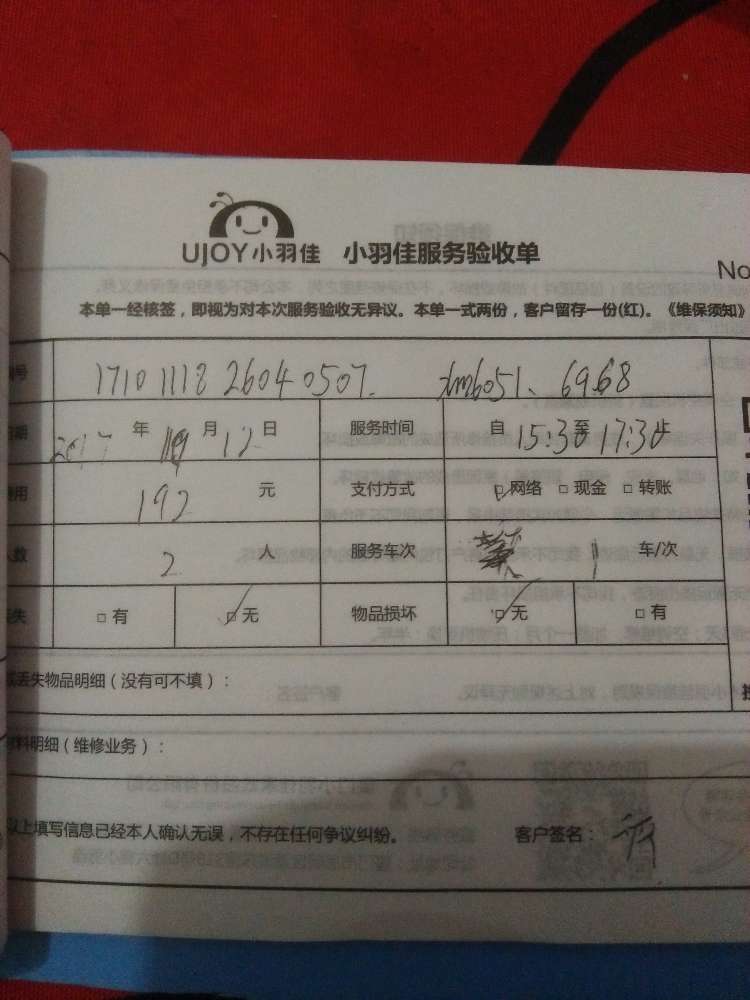 UJOY小羽佳 小羽佳服务验收单
No
本单一经核签，即视为对本次服务验收无异议。本单一式两份，客户留存一份(红)。《维保须知》
号 17101118 2604 0507. xm6051、6968
日期 2017 年 月 12 日 服务时间 自 15:30 至 17:30 止
用 192 元 支付方式 网络 现金 转账
人数 2 人 服务车次 1 车/次
失 有 无 物品损坏 无 有
丢失物品明细（没有可不填）：
料明细（维修业务）：
以上填写信息已经本人确认无误，不存在任何争议纠纷。 客户签名：